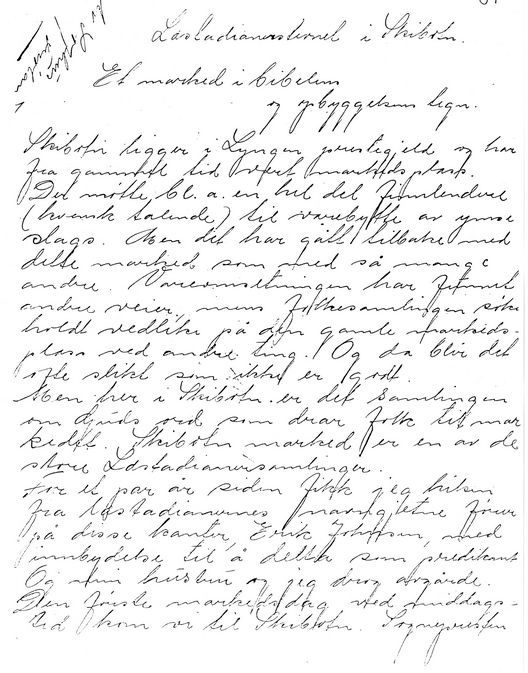 Læstadianerstevnet i Skibotn.
Et marked i bibelens
og opbyggelsens tegn.
Skibotn ligger i Lyngen prestegjeld og har
fra gammel tid vært markedsplass.
Der møtte bl. a. en hel del finnlendere
(kvensk talende) til varebytte av ymse
slags. Men det har gått tilbake med
dette marked som med så mange
andre. Vareomsetningen har funnet
andre veier, mens folkesamlingen søkes
holdt vedlike på den gamle markeds-
plass ved andre ting. Og da blir det
ofte slikt som ikke er godt.
Men her i Skibotn er det samlingen
om Guds ord som drar folk til mar
kedet. Skibotn marked er en av de
store Læstadianersamlinger.
For et par år siden fikk jeg hilsen
fra læstadianernes navngjetne fører
på disse kanter, Erik Johnsen, med
innbydelse til å delta som predikant
Og min hustru og jeg drog avgårde.
Den første markedsdag ved middags-
tid kom vi til Skibotn. Sognepresten